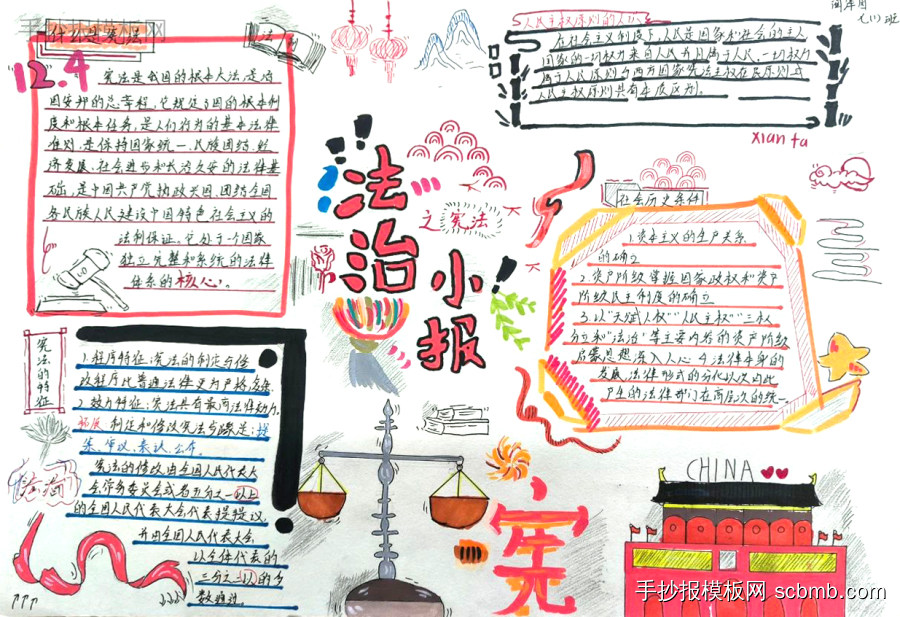 什么是宪法
法
12.4
宪法是我国的根本大法,是治
国安邦的总章程,它规定了国的根本制
度和根本任务,是人们行为的基本法律
准则,是保持国家统一、民族团结、经
济发展、社会进步和长治久安的法律基
础,是中国共产党执政兴国、团结全国
各民族人民建设中国特色社会主义的
法制保证。它处于一个国家
独立完整和系统的法律
体系的核心。
人民主权原则的
七(1)班
在社会主义制度下,人民是国家和社会的主人
国家的一切权力来自人民而且属于人民,一切权力
属于人民原则与西方国家宪法主权在民原则或
人民主权原则具有本质区别。
xian fa
法治
之宪法
小报
社会历史条件
1.资本主义的生产关系
的确立
2.资产阶级掌握国家政权和资产
阶级民主制度的确立
3.以"天赋人权""人民主权""三权
分立和"法治"等主要内容的资产阶级
启蒙思想深入人心 4.法律本身的
发展,法律形式的分化以及由此
产生的法律部门在高层次的统一。
宪法的特征
1.程序特征:宪法的制定与修
改程序比普通法律更为严格复杂
2.效力特征:宪法具有最高法律效力
拓展 制定和修改宪法步骤是:提
案、审议、表决、公布。
宪法的修改由全国人民代表大
会常务委员会或者五分之一以上
的全国人民代表大会代表提提议,
并由全国人民代表大会
以全体代表的
三分之二以的多
数通过。
CHINA
宪
手抄报模板网 scbmb.com